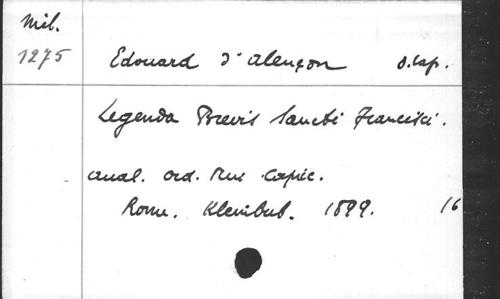 Mil.
1275 Edouard d'Alençon O. Cap.
Legenda Brevis Sancti Francisci.
anal. ord. Min. Capuc.
Rome. Kleinbub. 1899. 16